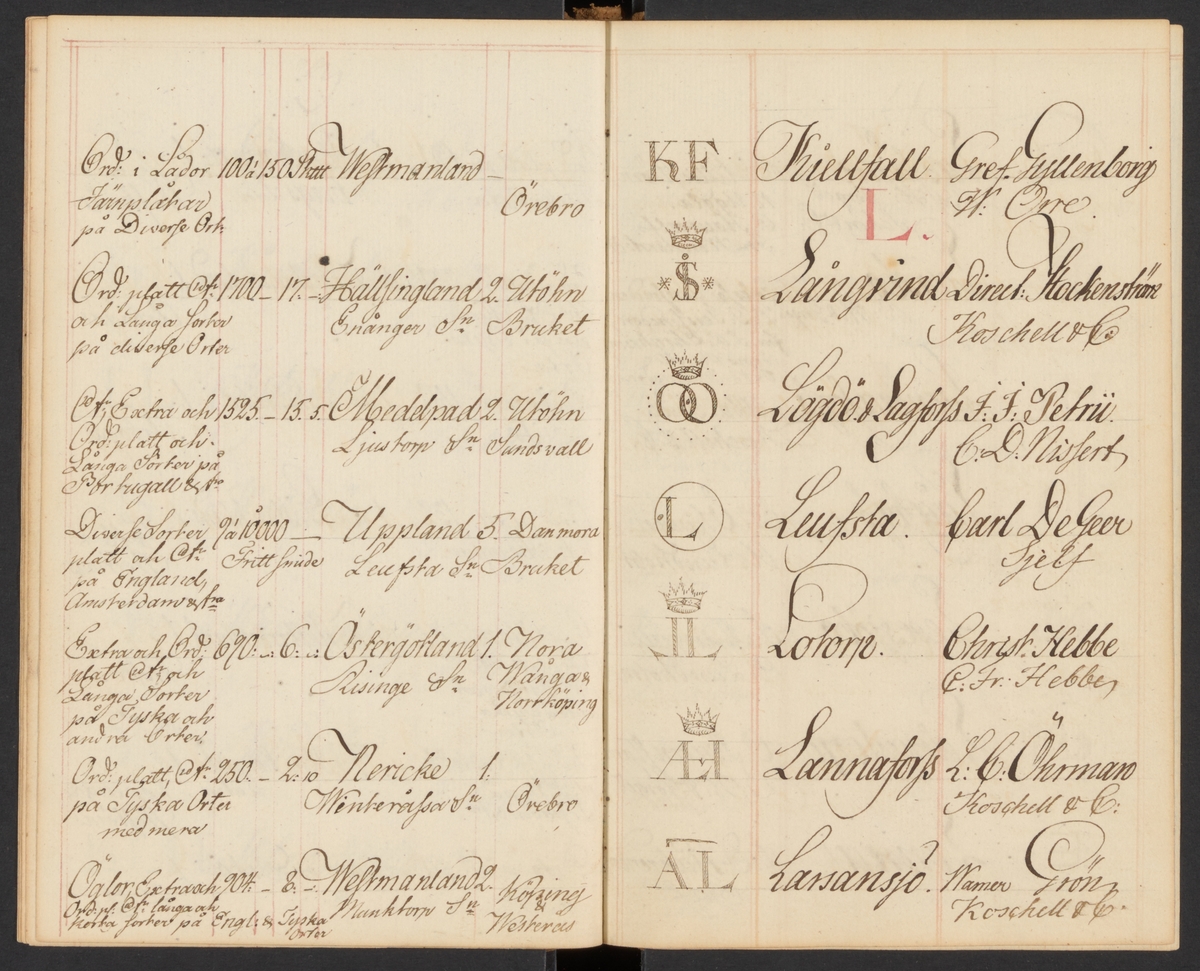 Ord: i Lådor 100 à 150 Westmanland –
Järnplåtar
Örebro
på Diverse Ort:
Ord: platt 1700 – 17: – Hällsingland 2. Utöhn
och Långa sorter Enånger Sn Bruket
på diverse Orter
Extra och 1525 – 15. 5. Medelpad 2. Utöhn
Ord: platt och Ljustorp Sn Sundsvall
Långa Sorter på
Portugall &
Diverse Sorter 9 à 10000 — Uppland 5. Danmora
platt och Fritt smide Leufsta Sn Bruket
på England,
Amsterdam &
Extra och Ord: 690: – 6: – Östergötland 1. Nora
platt och Risinge Sn Wånga &
Långa Sorter Norrköping
på Tyska och
andra Orter.
Ord: platt, 250. – 2: 10 Nericke 1:
på Tyska Orter Winteråsa Sn Örebro
med mera
Öglor, Extra och 904: – 8: – Westmanland 2. Köping
Ord: pl. långa och Munktorp Sn &
korta sorter på Engl: & Tyska Westerås
Orter
KF Kiellfall. Gref. Gyllenborg
W: Orre.
L.
S Långvind Direct: Stockenström
Koschell & C:
OO Lögdö & Lagforss J: J: Petrii.
C: D: Nissert
L Leufsta. Carl De Geer
Sjelf
LL Lotorp. Christ. Hebbe
C: Fr: Hebbe
ÆI Lannaforss L: C: Öhrman
Koschell & C:
AL Larsansjö. Warner Grön
Koschell & C: